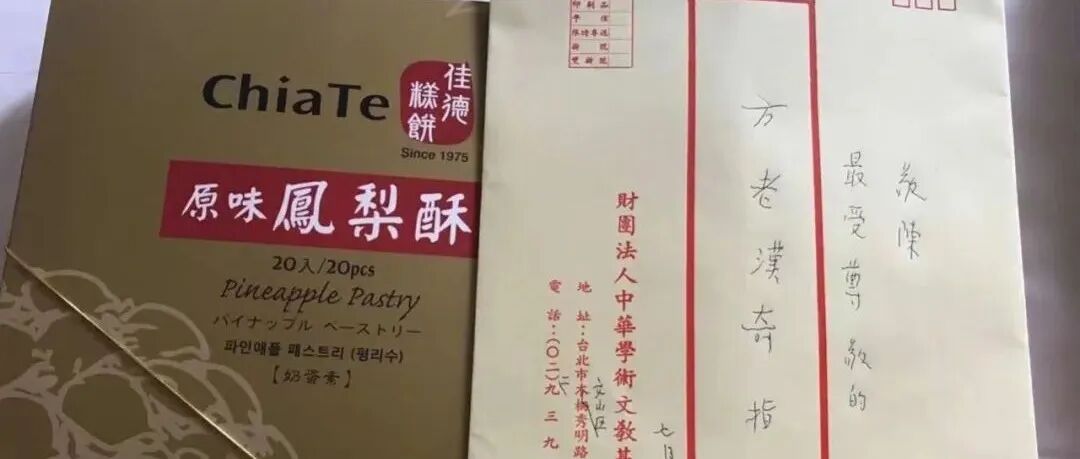 ChiaTe
佳德
糕餅
Since 1975
原味鳳梨酥
20入/20pcs
Pineapple Pastry
パイナップル ペーストリー
파인애플 패스트리 (펑리수)
【奶蛋素】
印刷品
平信
限時專送
掛號
雙掛號
敬陳
最受尊敬的
方老漢奇指
財團法人中華學術文教基
地址:台北市木柵秀明路
文山區
電話:(〇二)九三九
七月